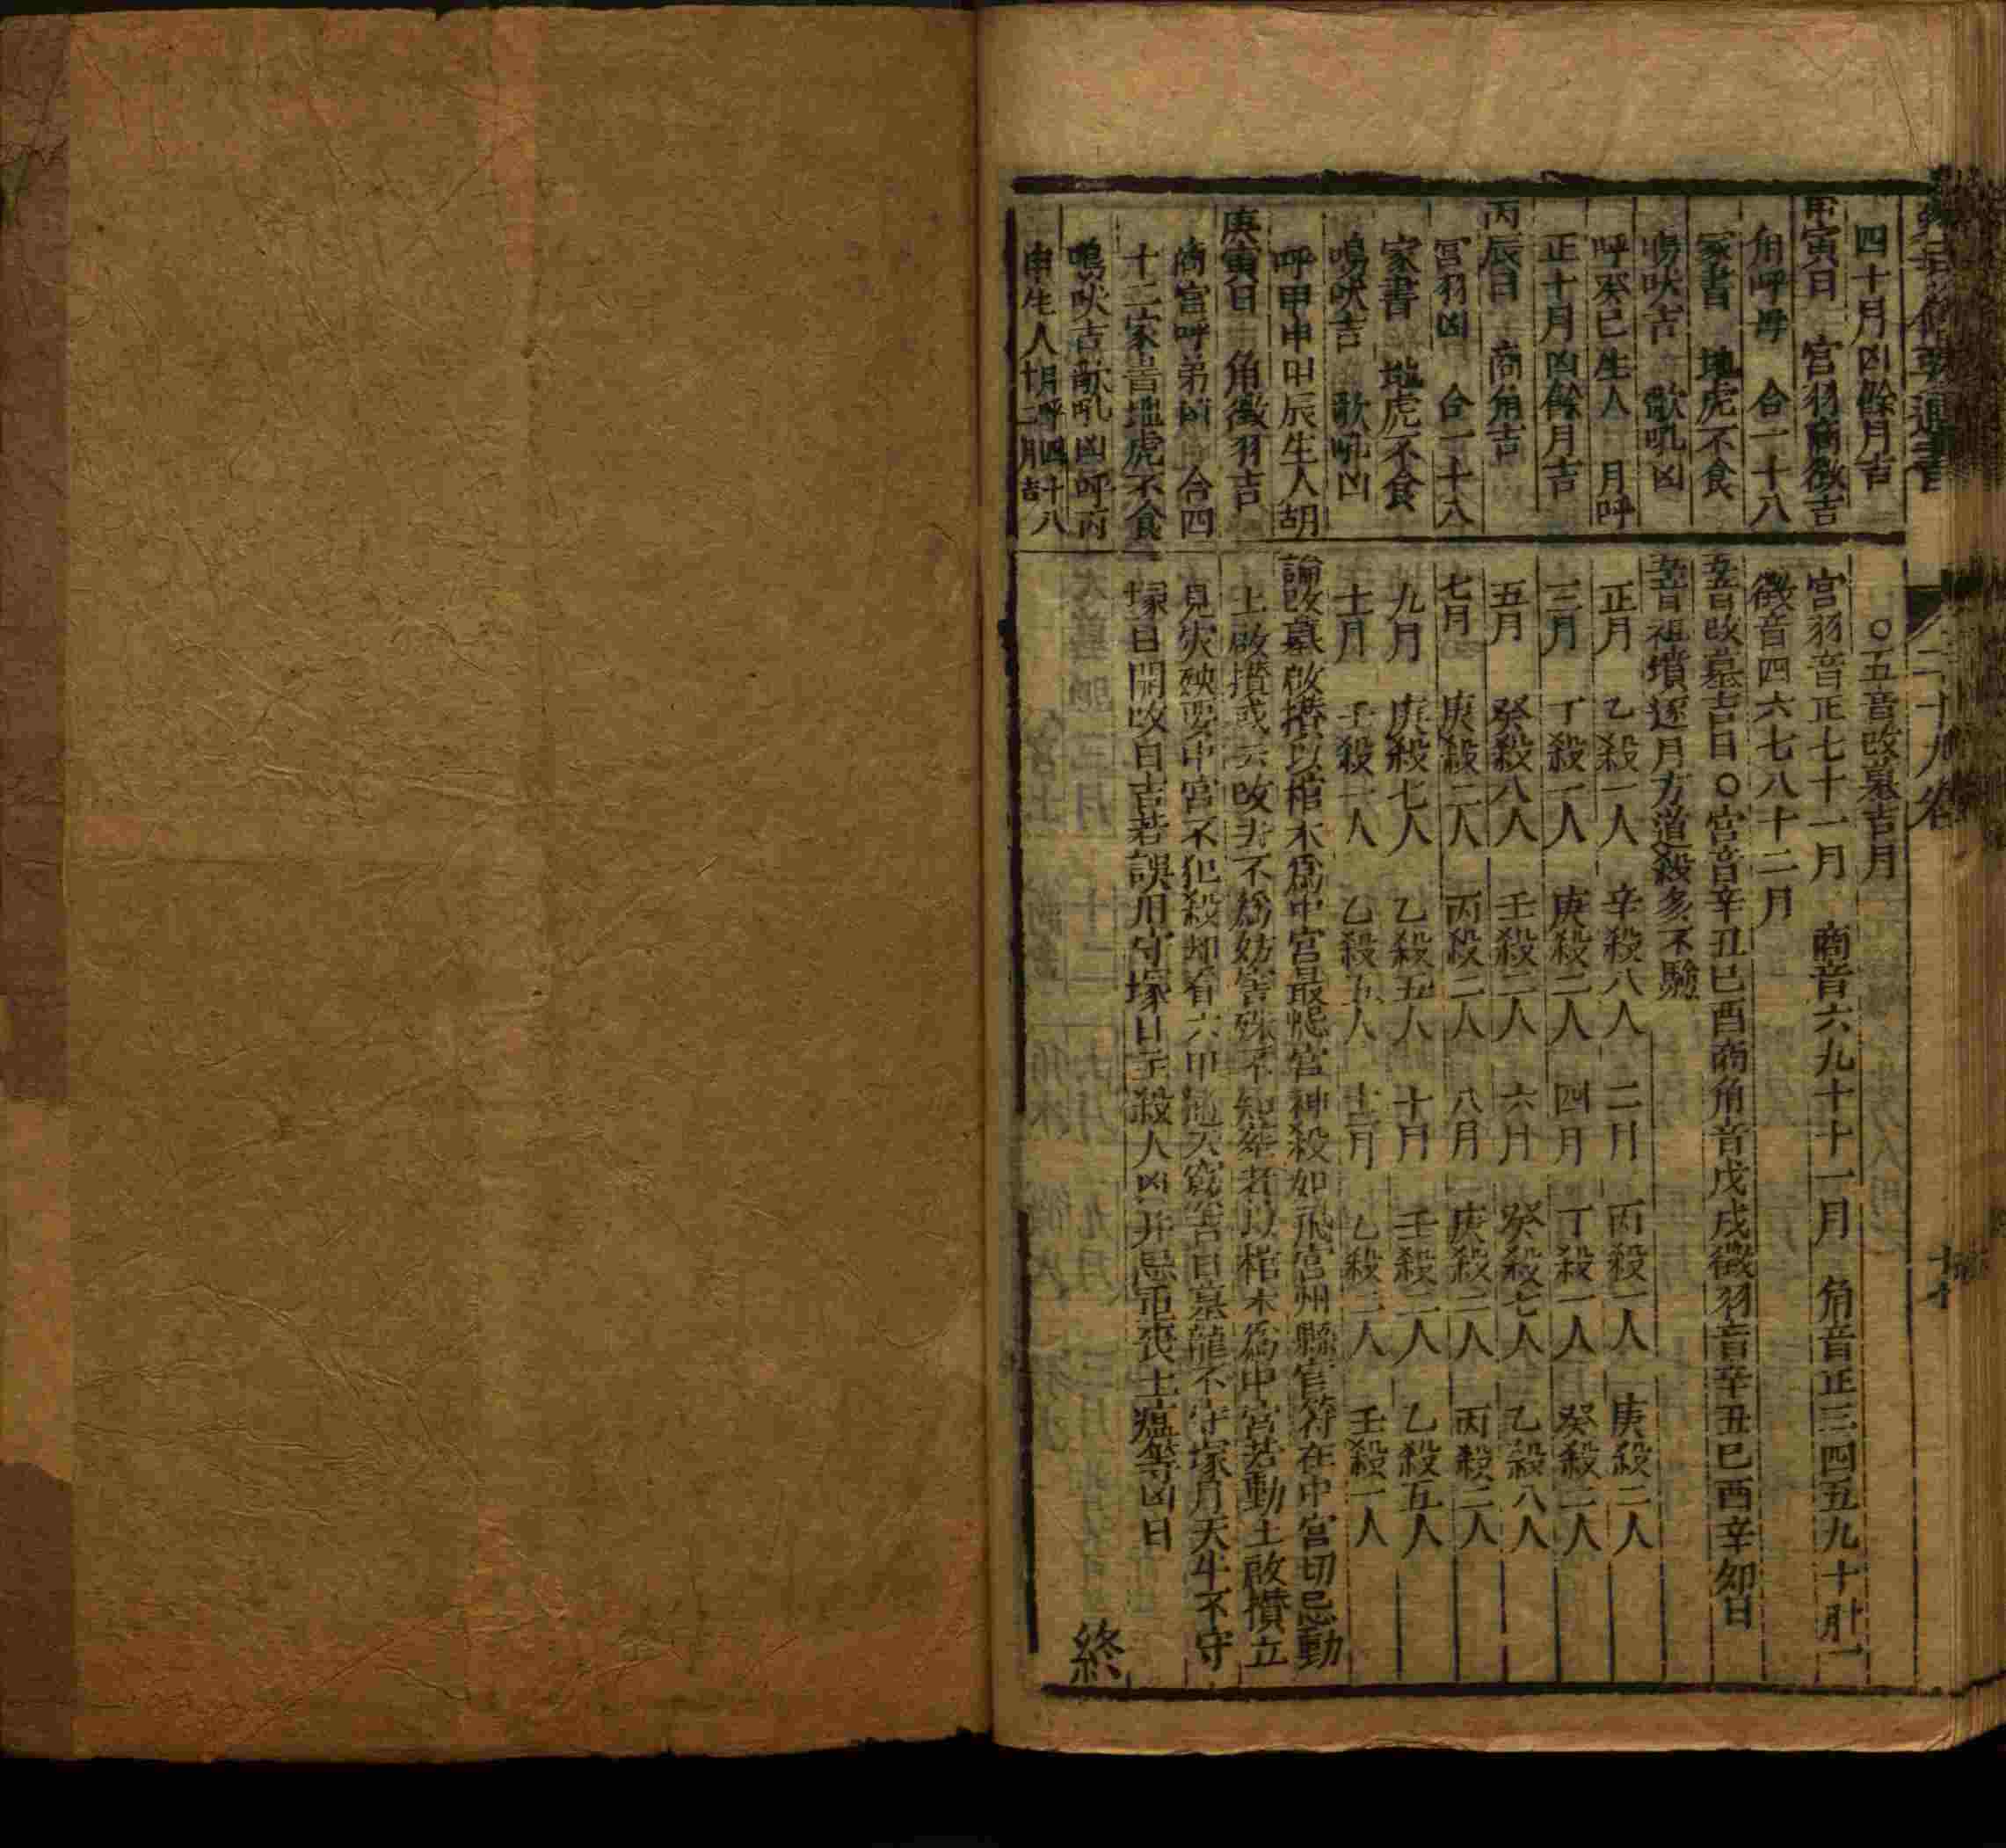 四十月凶餘月吉
甲寅日 宮羽商徵吉
角呼母 合一十八
冢書 地虎不食
鳴吠吉 歌吼凶
呼癸巳生人 月呼
正十月凶餘月吉
丙辰日 商角吉
宮羽凶 合一十八
家書 地虎不食
鳴吠吉 歌吼凶
呼甲申甲辰生人胡
庚寅日 角徵羽吉
商宮呼弟 合四
十二冢書地虎不食
鳴吠吉歌吼凶呼丙
申生人 十二月吉
〇五音改墓吉月
宮羽音正七十一月 商音六九十十一月 角音正三四五九十
徵音四六七八十二月
五音改墓吉日〇宮音辛丑巳酉商角音戊戌徵羽音辛丑巳酉辛卯日
五音祖墳逐月方道殺多不驗
正月 乙殺一人 辛殺八人 二月 丙殺一人 庚殺二人
三月 丁殺一人 庚殺二人 四月 丁殺一人 癸殺二人
五月 癸殺八人 壬殺二人 六月 癸殺七人 乙殺八人
七月 庚殺二人 丙殺二人 八月 庚殺二人 丙殺二人
九月 庚殺七人 乙殺五人 十月 壬殺二人 乙殺五人
十一月 壬殺一人 乙殺五人 十二月 乙殺二人 壬殺一人
論改墓啟攢以棺木爲中宮最忌官神殺如飛宮州縣官符在中宮切忌動
土啟攢或云改去不爲妨害殊不知葬者以棺木爲中宮若動土啟攢立
見灾殃要中宮不犯殺却看六甲 天竅吉日墓龍不守塚月天牛不守
塚日開改自吉若誤用守塚日主殺人凶并忌重喪土瘟等凶日
終
二十九卷